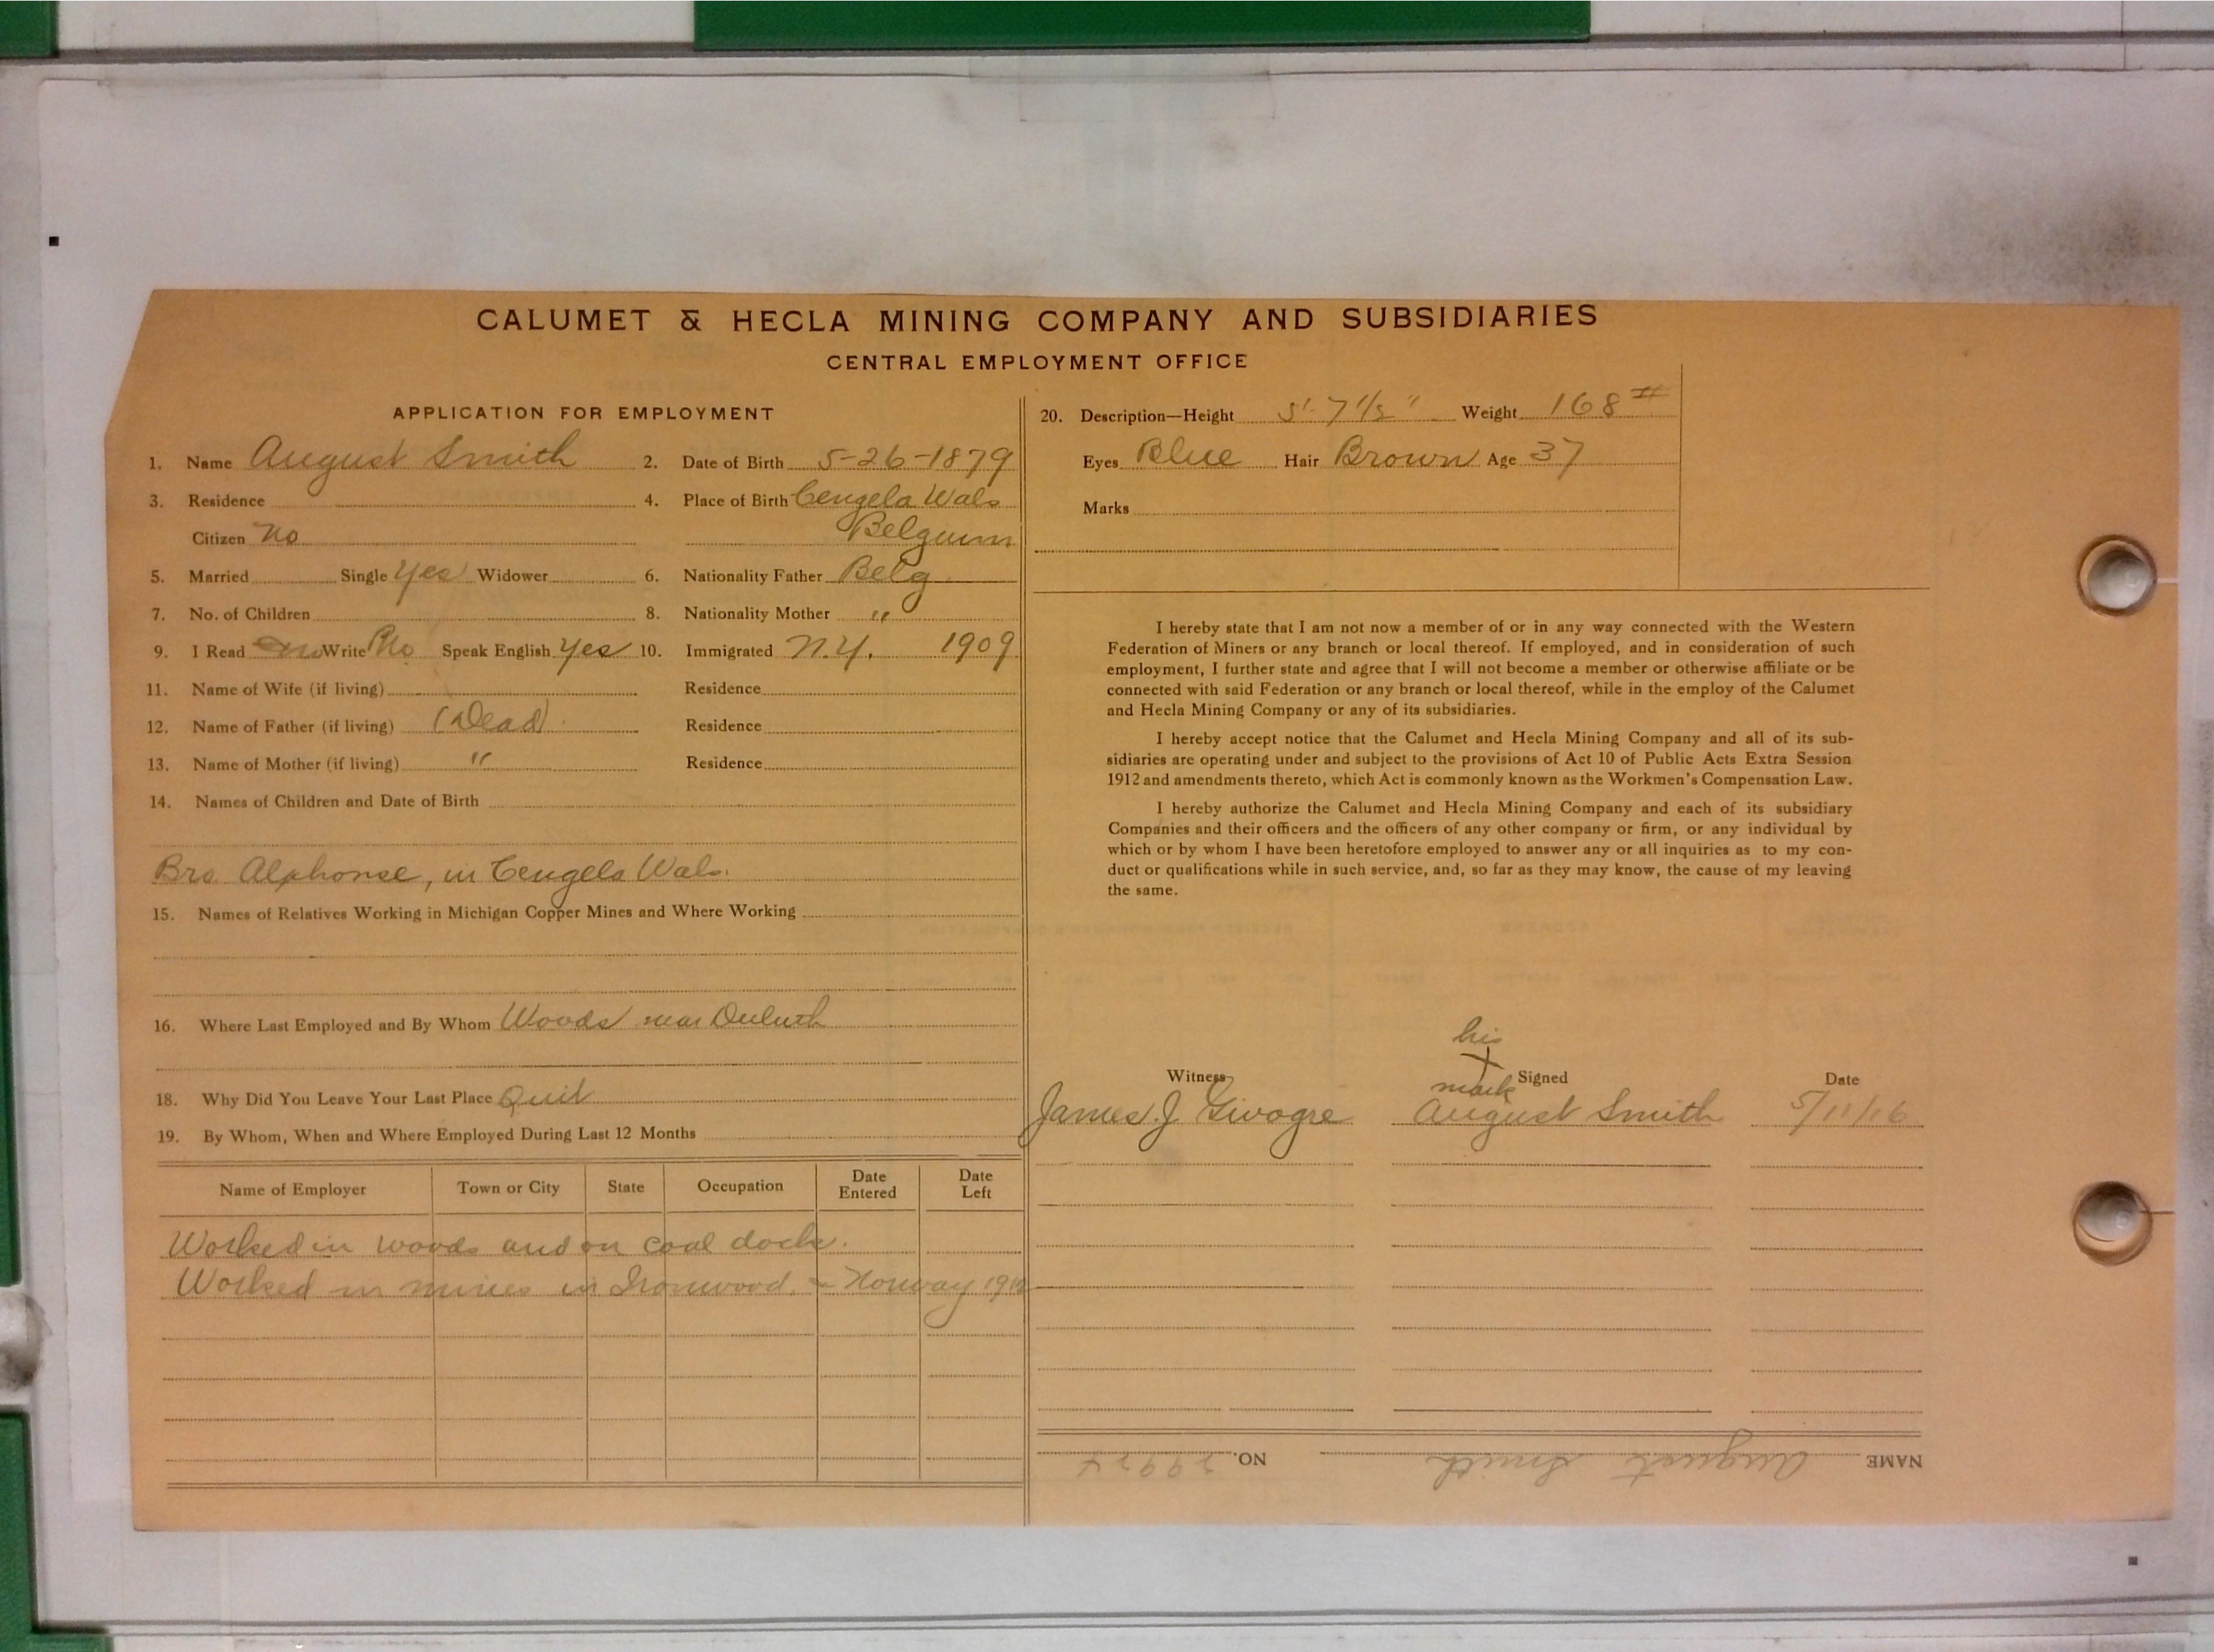 CALUMET & HECLA MINING COMPANY AND SUBSIDIARIES
CENTRAL EMPLOYMENT OFFICE
APPLICATION FOR EMPLOYMENT
1. Name August Smith 2. Date of Birth 5-26-1879
3. Residence 4. Place of Birth Cengela Wals
Citizen No Belguim
5. Married Single Yes Widower 6. Nationality Father Belg
7. No. of Children 8. Nationality Mother "
9. I Read Write No Speak English Yes 10. Immigrated N.Y. 1909
11. Name of Wife (if living) Residence
12. Name of Father (if living) (Dead) Residence
13. Name of Mother (if living) " Residence
14. Names of Children and Date of Birth
Bro. Alphonse, in Cengela Wals.
15. Names of Relatives Working in Michigan Copper Mines and Where Working
16. Where Last Employed and By Whom Woods near Duluth
18. Why Did You Leave Your Last Place Quit
19. By Whom, When and Where Employed During Last 12 Months
Name of Employer Town or City State Occupation Date Entered Date Left
Worked in woods and on coal dock.
Worked in mines in Ironwood. Norway
20. Description—Height 5'-7 1/2" Weight 168 #
Eyes Blue Hair Brown Age 37
Marks
I hereby state that I am not now a member of or in any way connected with the Western
Federation of Miners or any branch or local thereof. If employed, and in consideration of such
employment, I further state and agree that I will not become a member or otherwise affiliate or be
connected with said Federation or any branch or local thereof, while in the employ of the Calumet
and Hecla Mining Company or any of its subsidiaries.
I hereby accept notice that the Calumet and Hecla Mining Company and all of its sub-
sidiaries are operating under and subject to the provisions of Act 10 of Public Acts Extra Session
1912 and amendments thereto, which Act is commonly known as the Workmen's Compensation Law.
I hereby authorize the Calumet and Hecla Mining Company and each of its subsidiary
Companies and their officers and the officers of any other company or firm, or any individual by
which or by whom I have been heretofore employed to answer any or all inquiries as to my con-
duct or qualifications while in such service, and, so far as they may know, the cause of my leaving
the same.
his
Witness X Signed Date
mark
James J Givogre August Smith 5/11/16
NAME August Smith NO. 29924